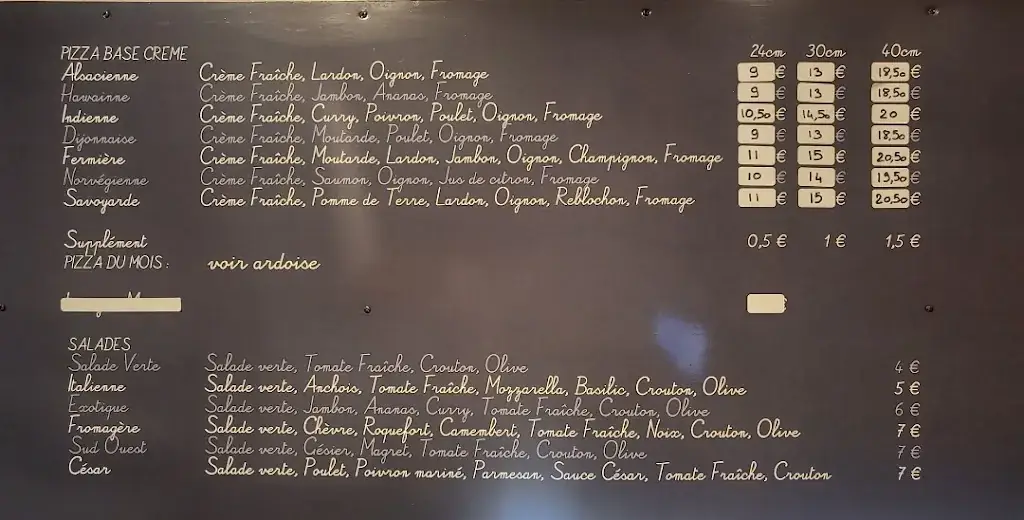 PIZZA BASE CREME 24cm 30cm 40cm
Alsacienne Crème Fraîche, Lardon, Oignon, Fromage 9 € 13 € 18,50 €
Hawainne Crème Fraîche, Jambon, Ananas, Fromage 9 € 13 € 18,50 €
Indienne Crème Fraîche, Curry, Poivron, Poulet, Oignon, Fromage 10,50 € 14,50 € 20 €
Dijonnaise Crème Fraîche, Moutarde, Poulet, Oignon, Fromage 9 € 13 € 18,50 €
Fermière Crème Fraîche, Moutarde, Lardon, Jambon, Oignon, Champignon, Fromage 11 € 15 € 20,50 €
Norvégienne Crème Fraîche, Saumon, Oignon, Jus de citron, Fromage 10 € 14 € 19,50 €
Savoyarde Crème Fraîche, Pomme de Terre, Lardon, Oignon, Reblochon, Fromage 11 € 15 € 20,50 €
Supplément 0,5 € 1 € 1,5 €
PIZZA DU MOIS : voir ardoise
SALADES
Salade Verte Salade verte, Tomate Fraîche, Crouton, Olive 4 €
Italienne Salade verte, Anchois, Tomate Fraîche, Mozzarella, Basilic, Crouton, Olive 5 €
Exotique Salade verte, Jambon, Ananas, Curry, Tomate Fraîche, Crouton, Olive 6 €
Fromagère Salade verte, Chèvre, Roquefort, Camembert, Tomate Fraîche, Noix, Crouton, Olive 7 €
Sud Ouest Salade verte, Gésier, Magret, Tomate Fraîche, Crouton, Olive 7 €
César Salade verte, Poulet, Poivron mariné, Parmesan, Sauce César, Tomate Fraîche, Crouton 7 €